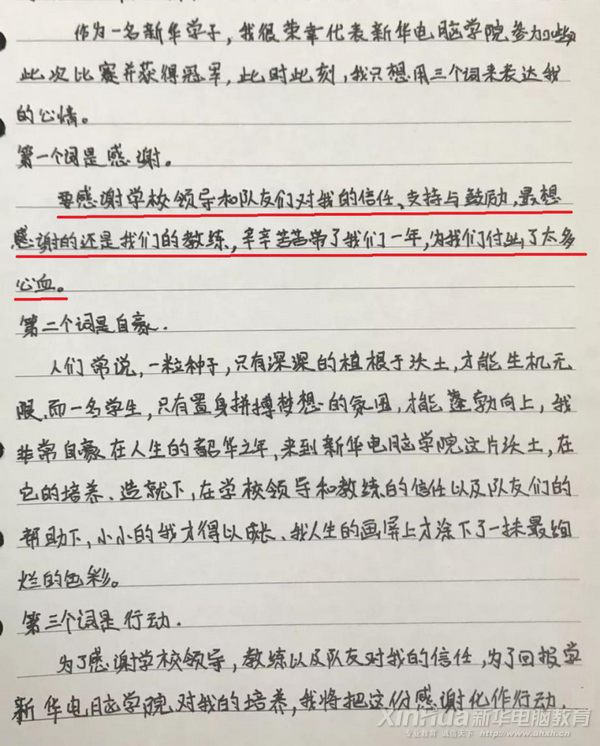 作为一名新华学子，我很荣幸代表新华电脑学院参加
此次比赛并获得冠军，此时此刻，我只想用三个词来表达我
的心情。
第一个词是感谢。
要感谢学校领导和队友们对我的信任、支持与鼓励，最想
感谢的还是我们的教练，辛辛苦苦带了我们一年，为我们付出了太多
心血。
第二个词是自豪.
人们常说，一粒种子，只有深深的植根于沃土，才能生机无
限.而一名学生，只有置身拼搏梦想的氛围，才能蓬勃向上，我
非常自豪在人生的韶华之年，来到新华电脑学院这片沃土，在
它的培养、造就下，在学校领导和教练的信任以及队友们的
帮助下，小小的我才得以成长、我人生的画屏上才涂下了一抹最绚
烂的色彩。
第三个词是行动.
为了感谢学校领导，教练以及队友对我的信任，为了回报
新华电脑学院对我的培养，我将把这份感谢化作行动.
Xinhua新华电脑教育
专业教育 诚信天下 http://www.ahxh.cn